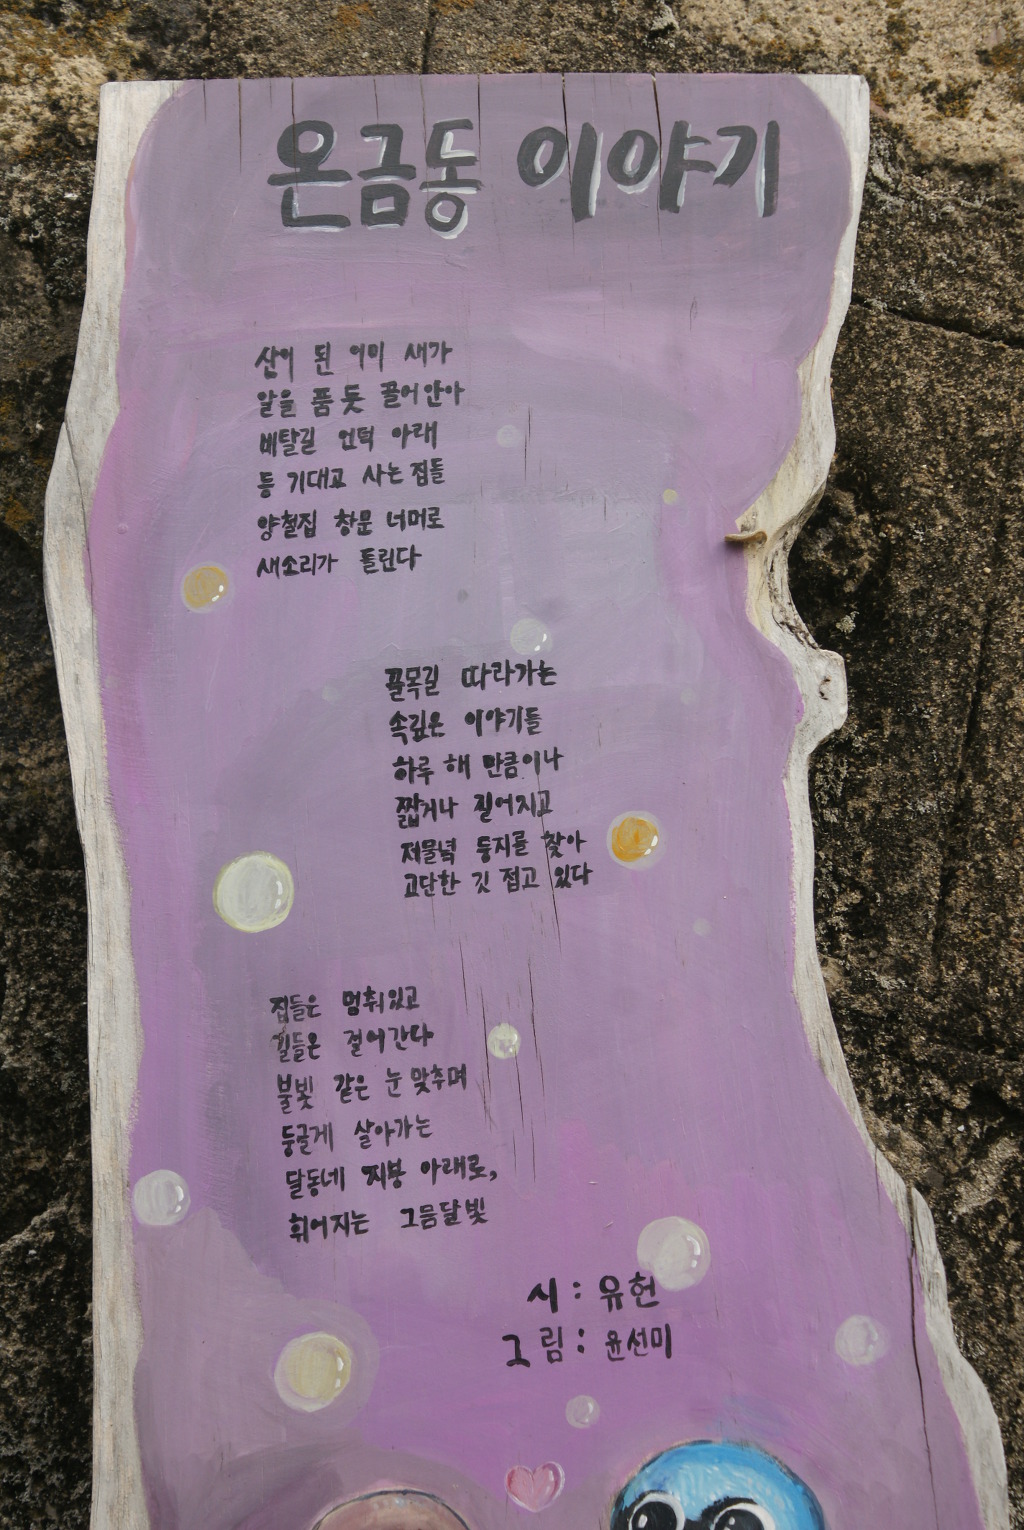 온금동 이야기
산이 된 어미 새가
알을 품듯 끌어안아
비탈길 언덕 아래
등 기대고 사는 집들
양철집 창문 너머로
새소리가 들린다
골목길 따라가는
속깊은 이야기들
하루 해 만큼이나
짧거나 길어지고
저물녘 둥지를 찾아
고단한 깃 접고 있다
집들은 멈춰있고
길들은 걸어간다
불빛 같은 눈 맞추며
둥글게 살아가는
달동네 지붕 아래로,
휘어지는 그믐달빛
시 : 유헌
그림 : 윤선미